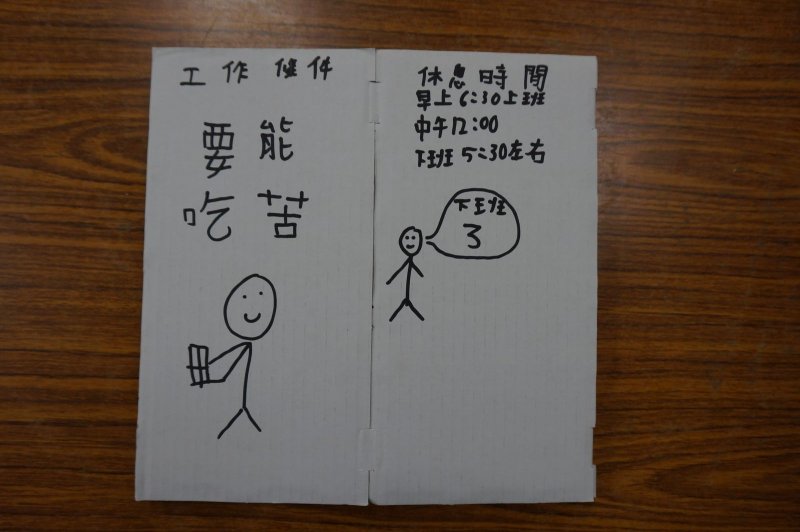 工作條件
要能
吃苦
休息時間
早上6:30上班
中午12:00
下班5:30左右
下班
3